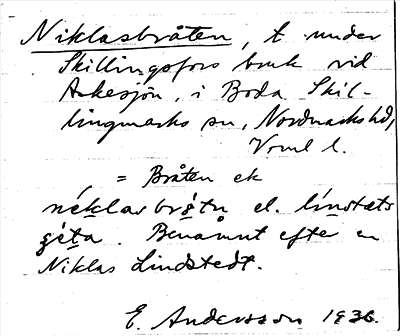 Niklasbråten, t. under
Skillingsfors bruk vid
Askesjön, i Boda Skil-
lingmarks sn, Nordmarks hd,
Vrml l.
= Bråten ek
néklasbrǻtn el. línstats
géta. Benämnt efter en
Niklas Lindstedt.
E. Andersson 1936